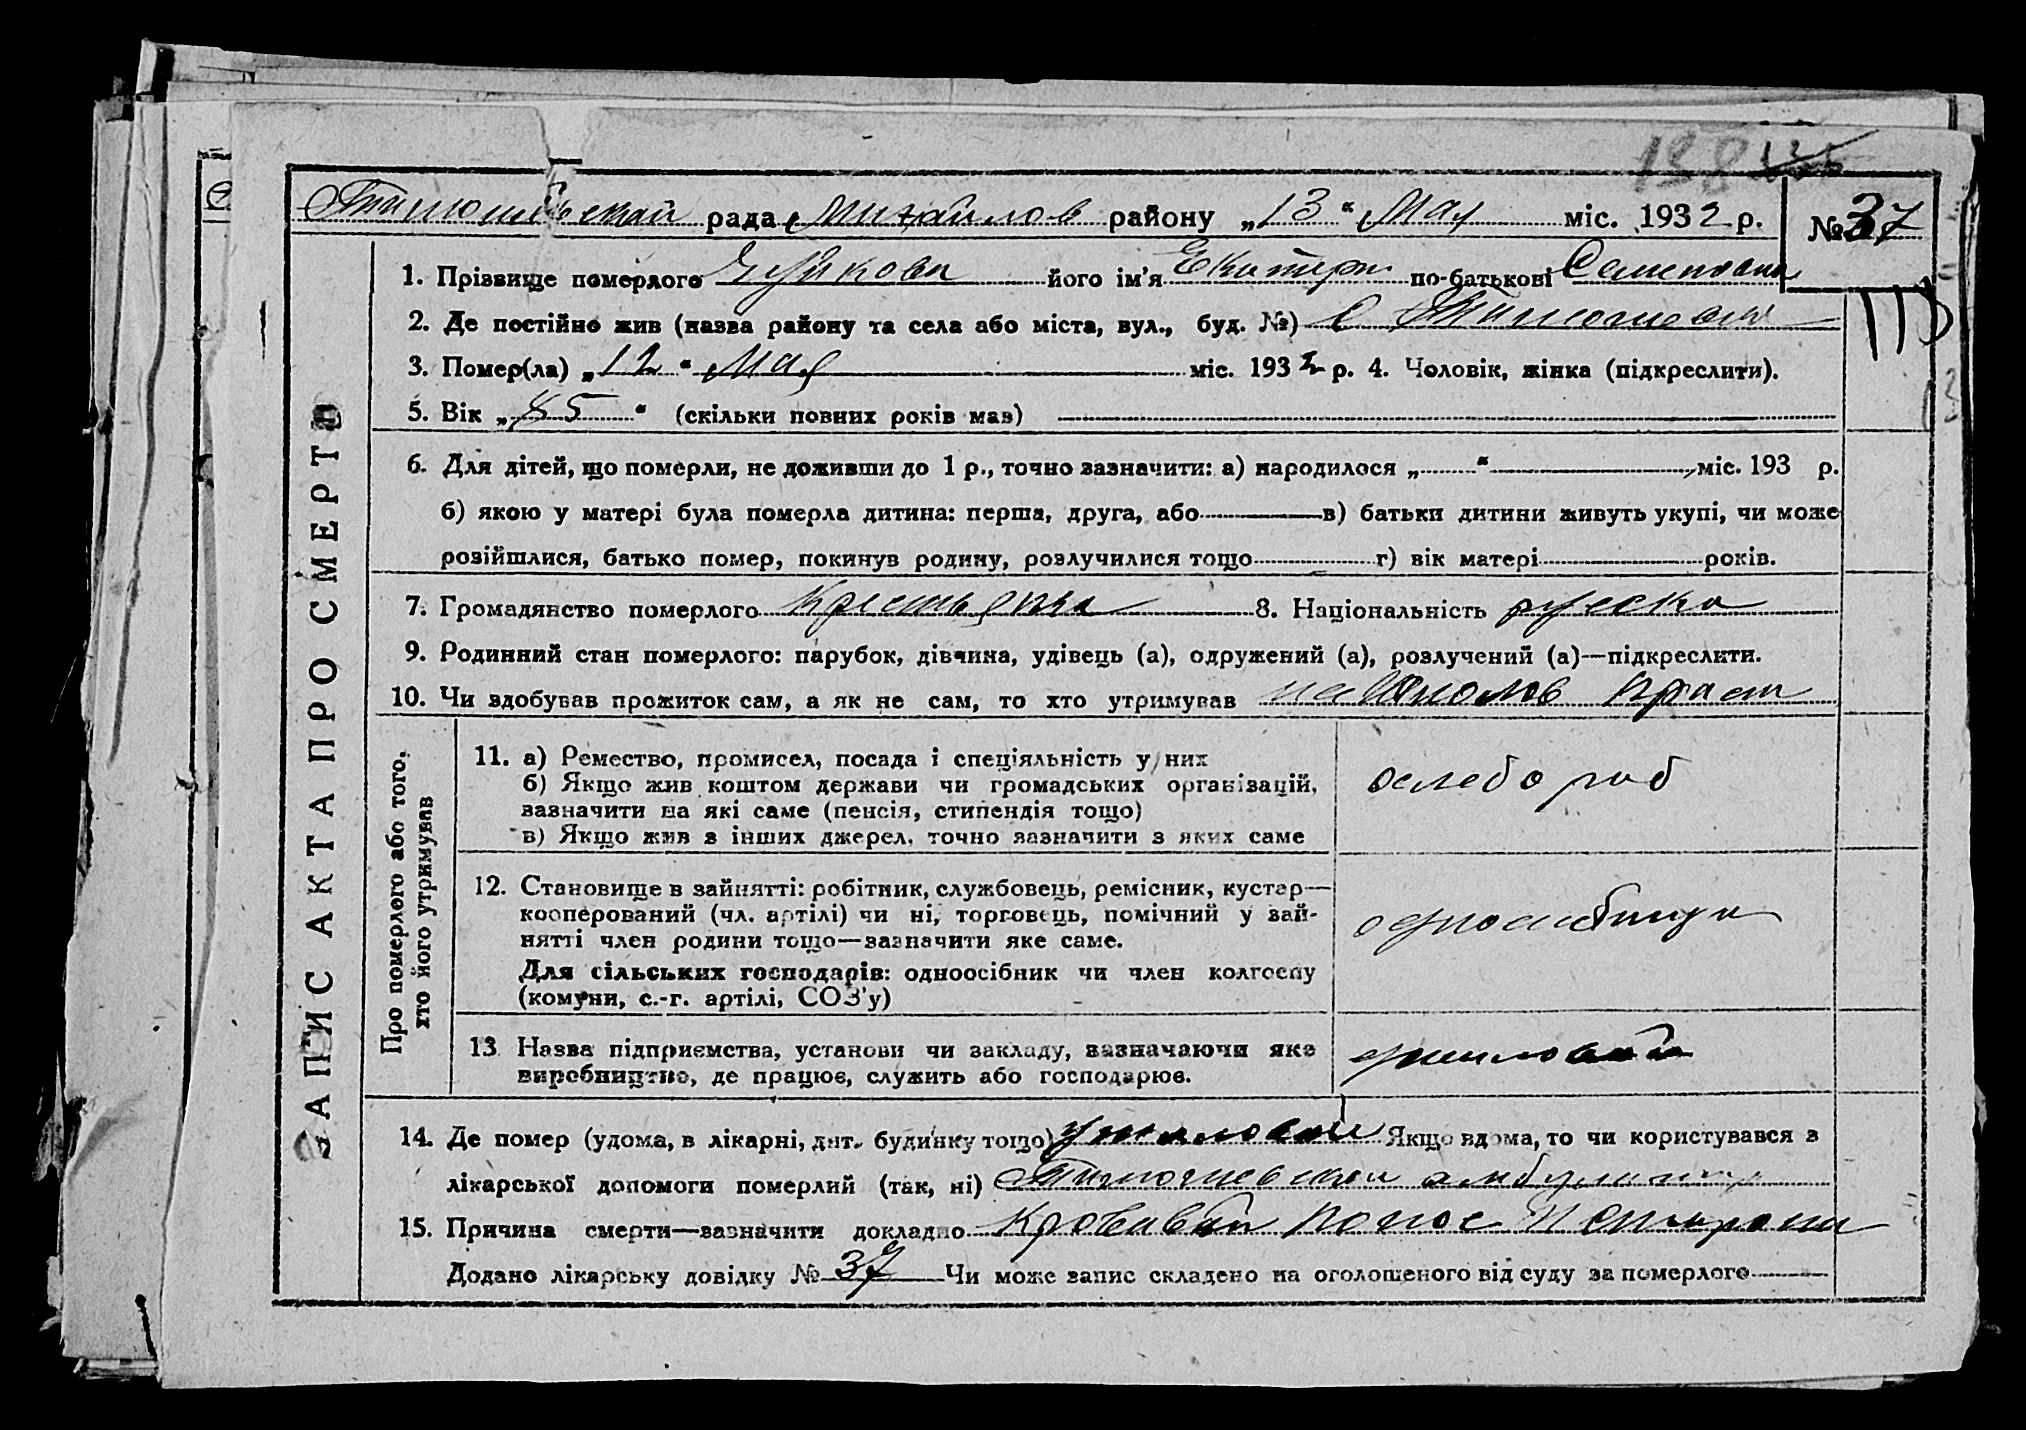 138
Тимошевской рада Михайлов району „13“ Мая міс. 1932 р. № 37
1. Прізвище померлого його ім'я Екатери по-батькові Семеновна
113
2. Де постійно жив (назва району та села або міста, вул., буд. №) с Тимошевка
3. Помер(ла) „12“ Мая міс. 1932 р. 4. Чоловік, жінка (підкреслити).
5. Вік „85“ (скільки повних років мав)
6. Для дітей, що померли, не доживши до 1 р., точно зазначити: а) народилося „ “ міс. 193 р.
б) якою у матері була померла дитина: перша, друга, або в) батьки дитини живуть укупі, чи може
розійшлися, батько помер, покинув родину, розлучилися тощо г) вік матері років.
7. Громадянство померлого крестьянка 8. Національність руска
9. Родинний стан померлого: парубок, дівчина, удівець (а), одружений (а), розлучений (а)—підкреслити.
10. Чи здобував прожиток сам, а як не сам, то хто утримував
ЗАПИС АКТА ПРО СМЕРТЬ
Про померлого або того, хто його утримував
11. а) Ремество, промисел, посада і спеціяльність у них
б) Якщо жив коштом держави чи громадських організацій,
зазначити на які саме (пенсія, стипендія тощо)
в) Якщо жив з інших джерел, точно зазначити з яких саме
хлебороб
12. Становище в зайнятті: робітник, службовець, ремісник, кустар—
кооперований (чл. артілі) чи ні, торговець, помічний у зай-
нятті член родини тощо—зазначити яке саме.
Для сільських господарів: одноосібник чи член колгоспу
(комуни, с.-г. артілі, СОЗ'у)
13 Назва підприємства, установи чи закладу, зазначаючи яке
виробництво, де працює, служить або господарює.
14. Де помер (удома, в лікарні, дит. будинку тощо) Якщо вдома, то чи користувався з
лікарської допомоги померлий (так, ні) Тимошевской амбулатор
15. Причина смерти—зазначити докладно Кровавый понос
Додано лікарську довідку № 37 Чи може запис складено на оголошеного від суду за померлого